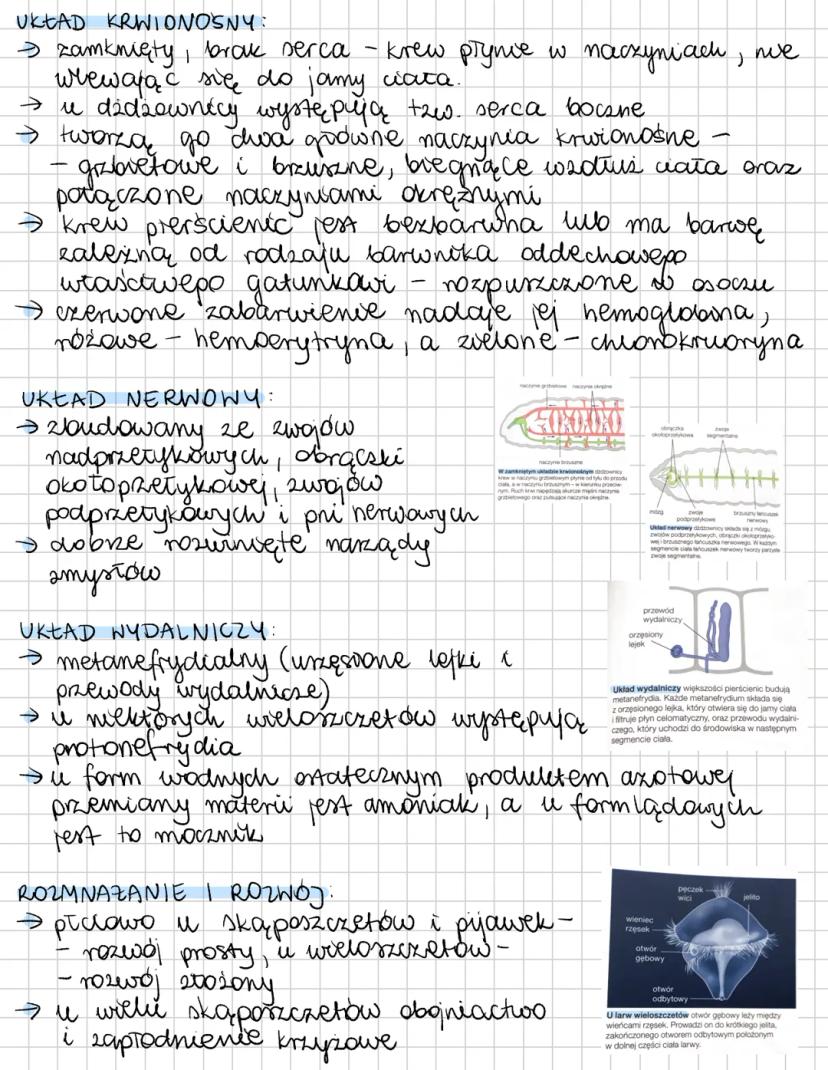 UKŁAD KRWIONOŚNY:
→ zamknięty, brak serca - krew płynie w naczyniach, nie
wlewając się do jamy ciała.
→ u dżdżownicy występują tzw. serca boczne
→ tworzą go dwa główne naczynia krwionośne -
- grzbietowe i brzuszne, biegnące wzdłuż ciała oraz
połączone naczyniami okrężnymi
→ krew pierścienic jest bezbarwna lub ma barwę
zależną od rodzaju barwnika oddechowego
właściwego gatunkowi - rozpuszczone w osoczu
→ czerwone zabarwienie nadaje jej hemoglobina,
różowe - hemoerytryna, a zielone - chlorokruoryna
UKŁAD NERWOWY:
→ zbudowany ze zwojów
nadprzełykowych, obrączki
okołoprzełykowej, zwojów
podprzełykowych i pni nerwowych
→ dobrze rozwinięte narządy
zmysłów
naczynie grzbietowe naczynie okrężne
naczynie brzuszne
W zamkniętym układzie krwionośnym dżdżownicy
krew w naczyniu grzbietowym płynie od tyłu do przodu
ciała, a w naczyniu brzusznym – w kierunku przeciw-
nym. Ruch krwi napędzają skurcze mięśni naczynia
grzbietowego oraz pulsujące naczynia okrężne.
obrączka
okołoprzełykowa
zwoje
segmentalne
mózg
zwoje
podprzełykowe
brzuszny łańcuszek
nerwowy
Układ nerwowy dżdżownicy składa się z mózgu,
zwojów podprzełykowych, obrączki okołoprzełyko-
wej i brzusznego łańcuszka nerwowego. W każdym
segmencie ciała łańcuszek nerwowy tworzy parzyste
zwoje segmentalne.
UKŁAD WYDALNICZY:
→ metanefrydialny (urzęsione lejki i
przewody wydalnicze)
→ u niektórych wieloszczetów występują
protonefrydia
→ u form wodnych ostatecznym produktem azotowej
przemiany materii jest amoniak, a u form lądowych
jest to mocznik
przewód
wydalniczy
orzęsiony
lejek
Układ wydalniczy większości pierścienic budują
metanefrydia. Każde metanefrydium składa się
z orzęsionego lejka, który otwiera się do jamy ciała
i filtruje płyn celomatyczny, oraz przewodu wydalni-
czego, który uchodzi do środowiska w następnym
segmencie ciała.
ROZMNAŻANIE I ROZWÓJ:
→ płciowo u skąposzczetów i pijawek -
- rozwój prosty, u wieloszczetów -
- rozwój złożony
→ u wielu skąposzczetów obojniactwo
i zapłodnienie krzyżowe
pęczek
wici
jelito
wieniec
rzęsek
otwór
gębowy
otwór
odbytowy
U larw wieloszczetów otwór gębowy leży między
wieńcami rzęsek. Prowadzi on do krótkiego jelita,
zakończonego otworem odbytowym położonym
w dolnej części ciała larwy.